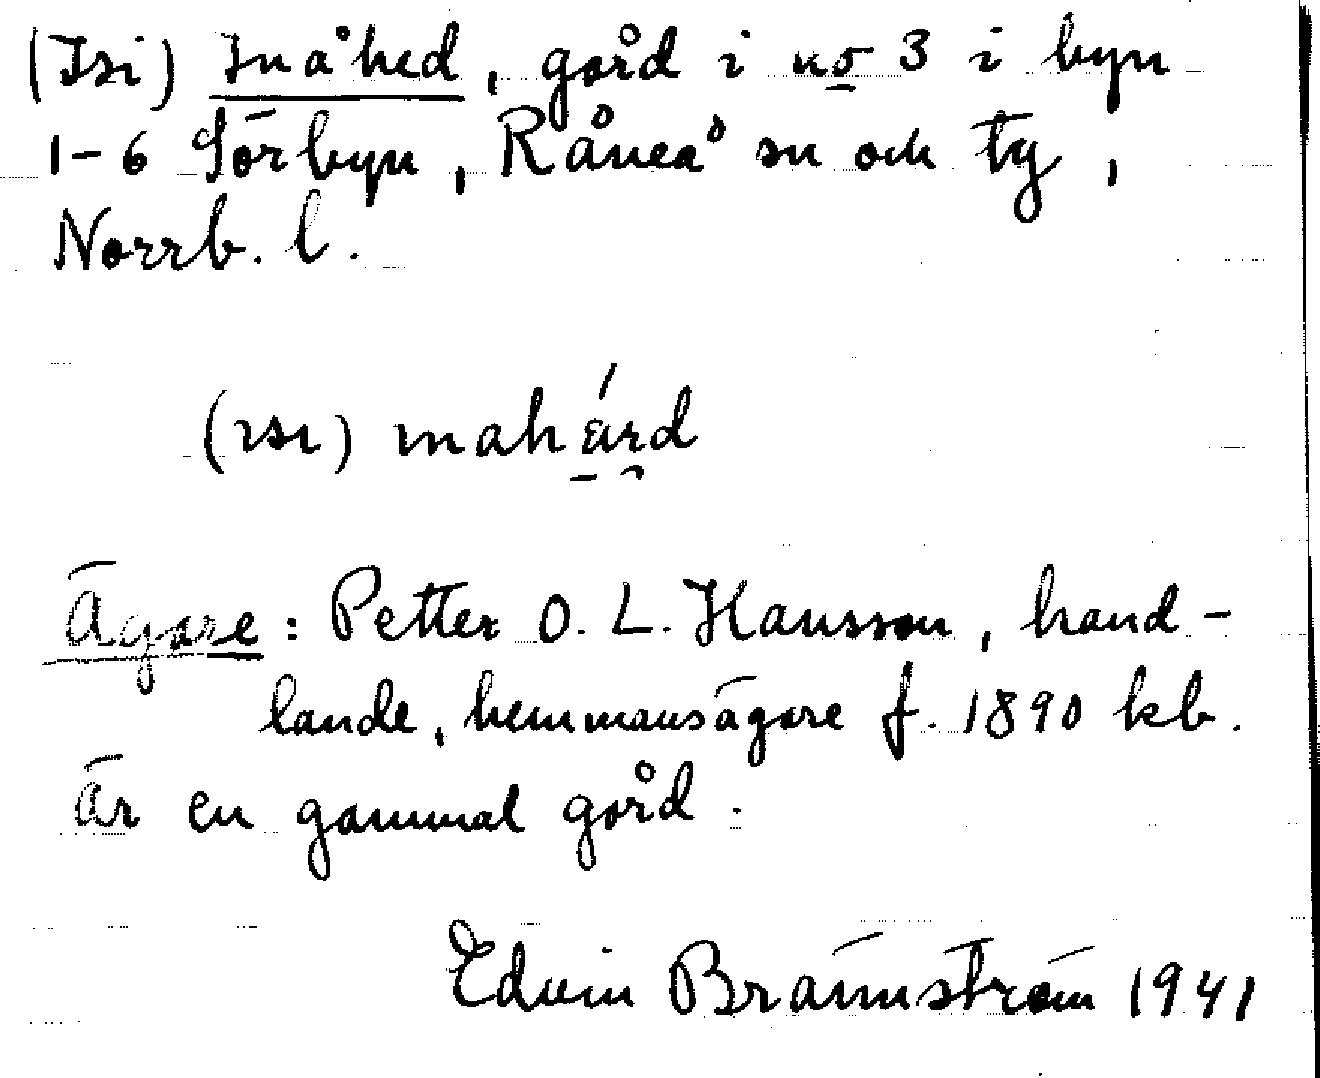 (Isi) Inåhed, gård i no 3 i byn
1-6 Sörbyn, Råneå sn och tg,
Norrb. l.
(ısı)
Ägare: Petter O. L. Hansson, hand-
lande, hemmansägare f. 1890 kb.
Är en gammal gård.
Edvin Brännström 1941